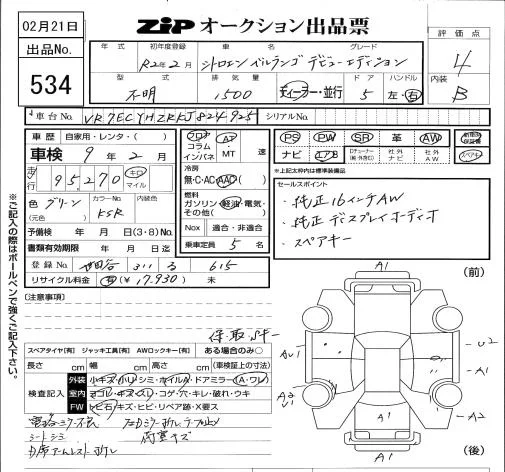 02月21日
ZiP オークション出品票
出品No.
534
年式
初年度登録
車名
グレード
評価点
R2年2月
シトロエン ベルランゴ デビューエディション
4
型式
排気量
ドア
ハンドル
不明
1500
ディーラー・並行
5
左・右
内装
B
車台No.
VR7ECYHZRKJ824925
シリアルNo.
車歴
自家用・レンタ・( )
車検
9年2月
走行
95,270
キロ
マイル
色
グリーン
(元色)
カラーNo.
KSR
内装色
予備検
年 月 日(3・8)No.
書類有効期限 年 月 日迄
登録No.
世田谷 311 る 615
リサイクル料金
有(¥17,930) 未
フロア
コラム
インパネ
AT
・
MT
速
冷房
無・C・AC・AAC
燃料
ガソリン・軽油・電気・
その他( )
Nox 適合・非適合
乗車定員 5 名
PS PW SB 革 AW
ナビ エアB
社外
ナビ
社外
AW
新車時
保証書
スペアキー
※上記太枠内は標準装備品
セールスポイント
・純正16インチAW
・純正ディスプレイオーディオ
・スペアキー
※ご記入の際はボールペンで強くご記入下さい。
[注意事項]
保・取・Sキー
スペアタイヤ[有] ジャッキ工具[有] AWロックキー[有] ある場合のみ○
長さ cm 幅 cm 高さ cm (車検証上の寸法)
検査記入
外装
小キズ・小凹・シミ・ホイルA・ドアミラー(A・ワレ)
室内
ヨゴレ・キズ・スレ・コゲ・穴・キレ・破れ・ウキ
FW
トビ石・キズ・ヒビ・リペア跡・X要ス
荷室キズ
シートシミ
(前)
A1
AU1
U2
A1
A2
U1
A2
A1
A1
(後)